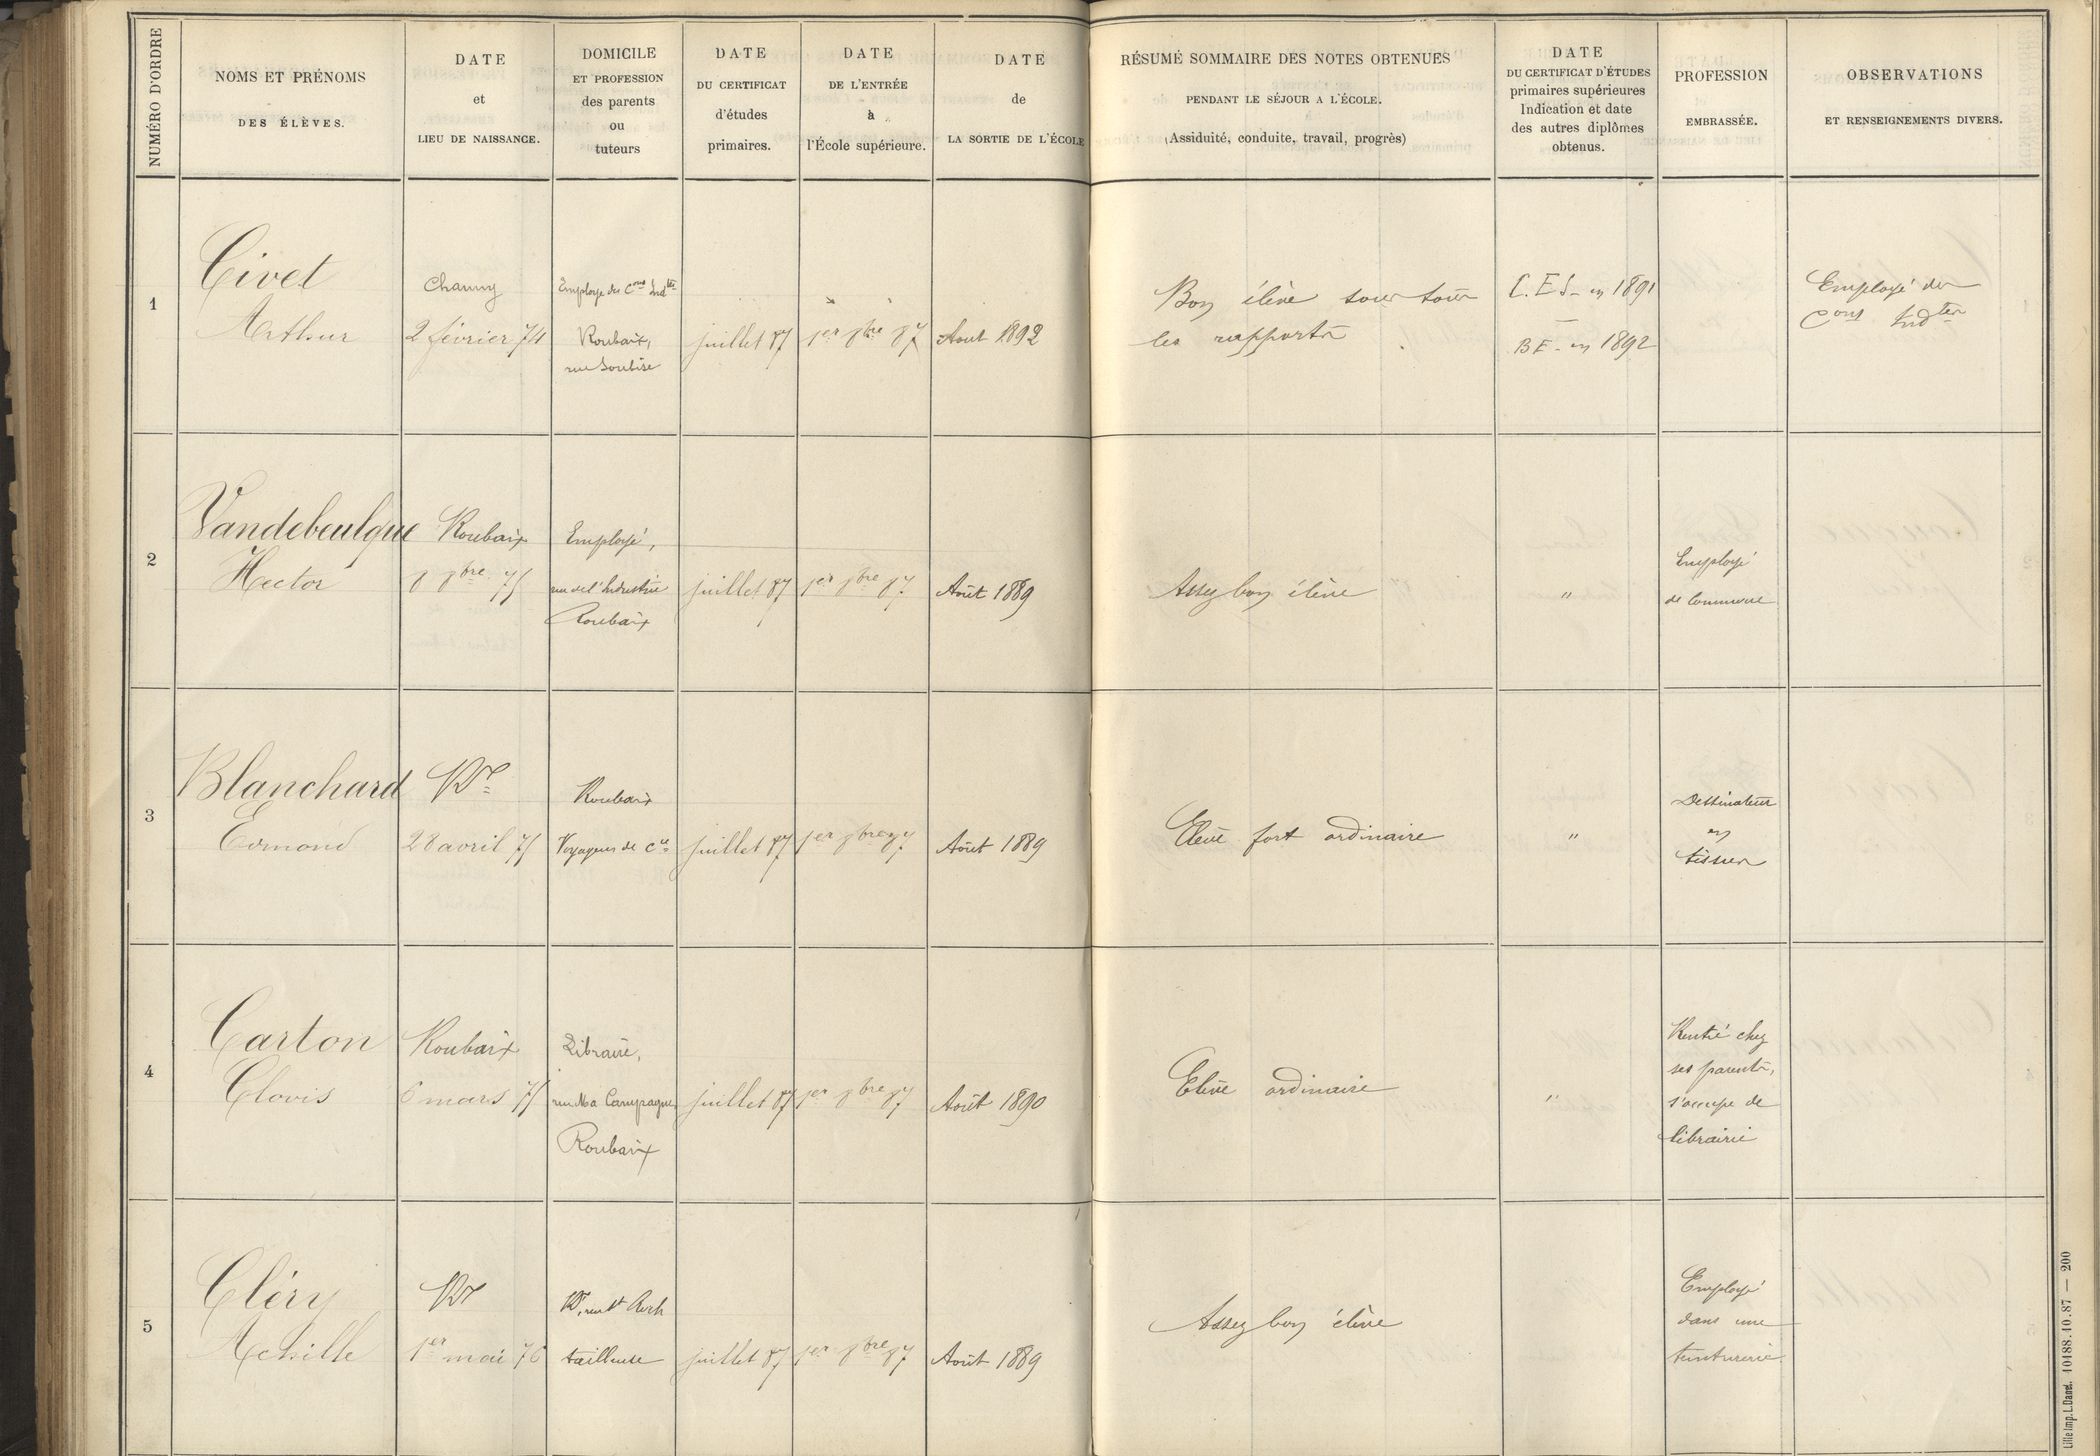 NUMÉRO D'ORDRE
NOMS ET PRÉNOMS
DES ÉLÈVES.
DATE
et
LIEU DE NAISSANCE.
DOMICILE
ET PROFESSION
des parents
ou
tuteurs
DATE
DU CERTIFICAT
d'études
primaires.
DATE
DE L'ENTRÉE
à
l'École supérieure.
DATE
de
LA SORTIE DE L'ÉCOLE
RÉSUMÉ SOMMAIRE DES NOTES OBTENUES
PENDANT LE SÉJOUR A L'ÉCOLE.
(Assiduité, conduite, travail, progrès)
DATE
DU CERTIFICAT D'ÉTUDES
primaires supérieures
Indication et date
des autres diplômes
obtenus.
PROFESSION
EMBRASSÉE.
OBSERVATIONS
ET RENSEIGNEMENTS DIVERS.
1
Civet
Arthur
Chauny
2 février 74
Employé des Cons Indtes
Roubaix,
rue Soubise
juillet 87
1er 8bre 87
Aout 1892
Bon élève sous tous
les rapports
C.E.S - en 1891
BE - en 1892
Employé des
Cons Indtes
2
Vandebeulque
Hector
Roubaix
8 8bre 75
Employé,
rue de l'Industrie
Roubaix
juillet 87
1er 8bre 87
Août 1889
Assez bon élève
"
Employé
de Commerce
3
Blanchard
Edmond
Rx
28 avril 75
Roubaix
Voyageur de Cce
juillet 87
1er 8bre 87
Août 1889
Elève fort ordinaire
"
Dessinateur
en
tissus
4
Carton
Clovis
Roubaix
6 mars 75
Libraire,
rue Ma Campagne
Roubaix
juillet 87
1er 8bre 87
Août 1890
Elève ordinaire
"
Rentré chez
ses parents,
s'occupe de
librairie
5
Cléry
Achille
Rx
1er mai 76
Rx, rue St
tailleuse
juillet 87
1er 8bre 87
Août 1889
Assez bon élève
Employé
dans une
teinturerie
Lille Imp. L. Danel. 10188.10.87 — 200